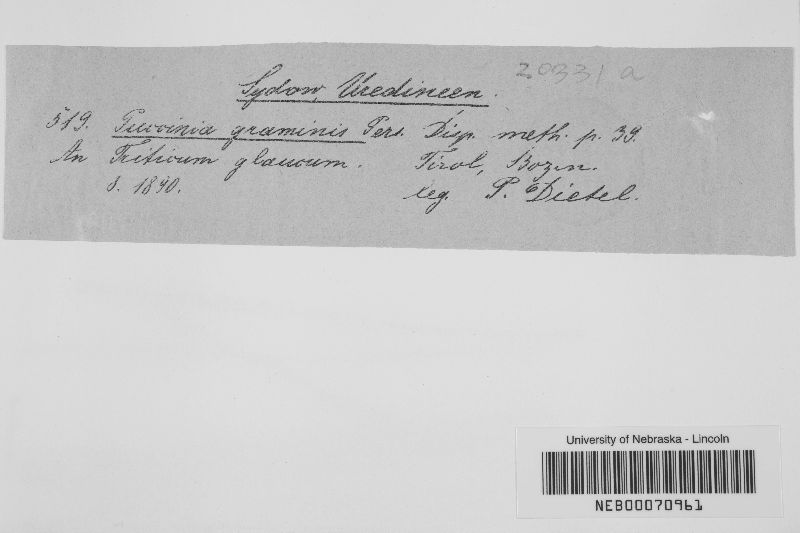 20331 a
Sydow, Uredineen.
519. Puccinia graminis Pers. Disp. meth. p. 39.
An Triticum glaucum. Tirol, Bozen.
8. 1890. leg. P. Dietel.
University of Nebraska - Lincoln
NEB00070961